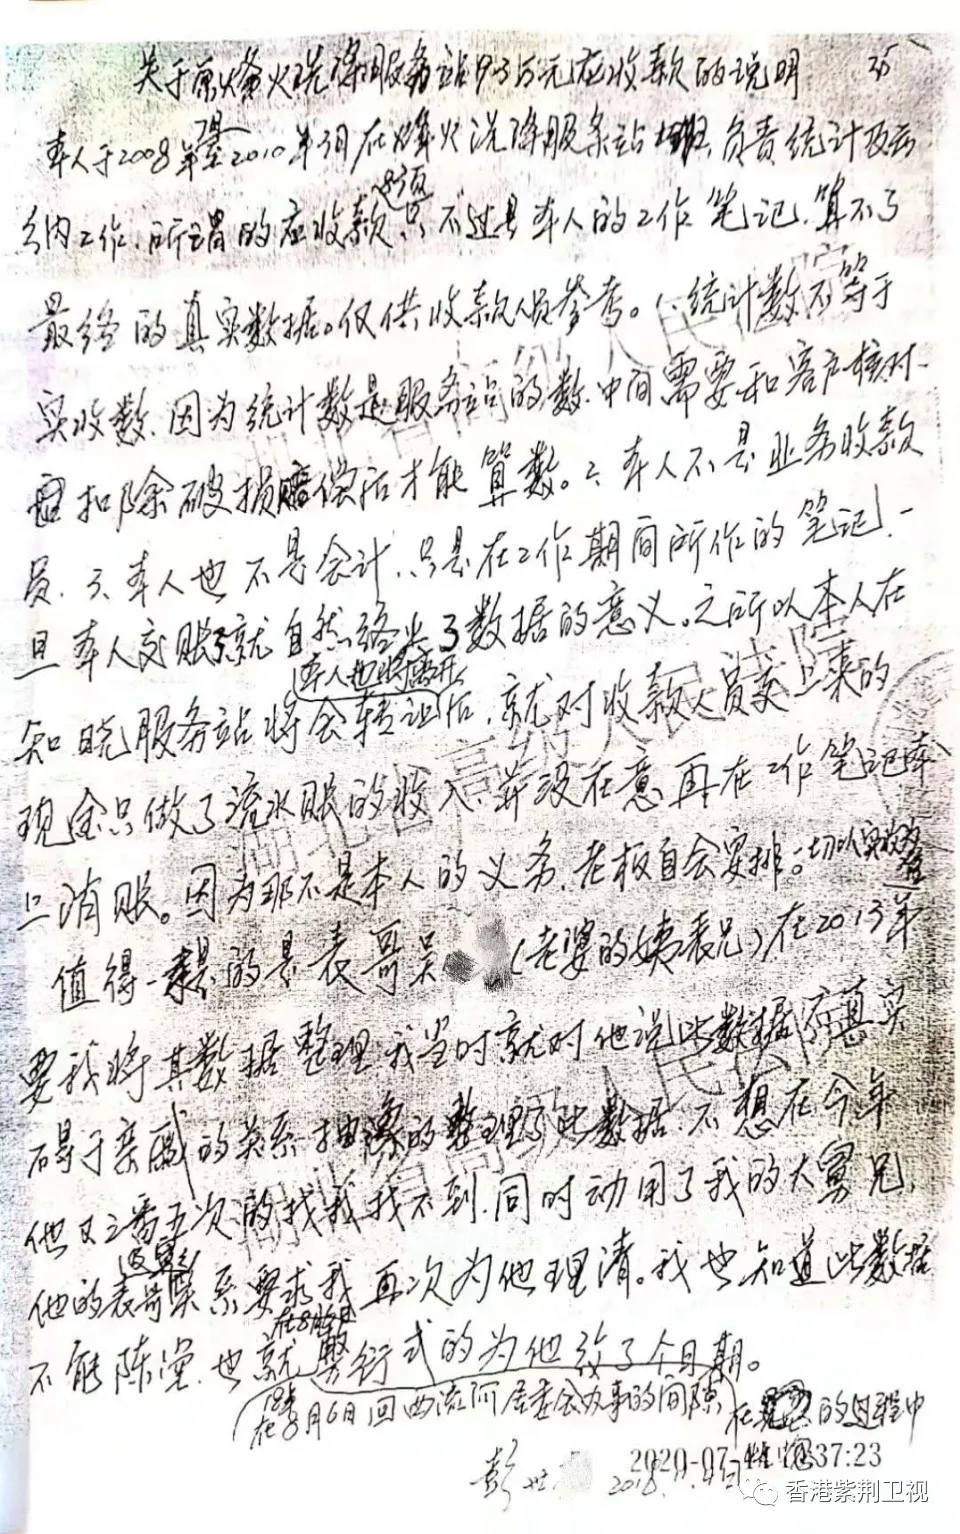 关于原烽火洗涤服务站93万元应收款的说明 35
本人于2008年7月至2010年3月在烽火洗涤服务站担任负责统计及出
纳工作,所谓的应收款只不过是本人的工作笔记,算不了
最终的真实数据。仅供收款人员参考。1、统计数不等于
实收数,因为统计数是服务站的数,中间需要和客户核对
扣除破损赔偿后才能算数。2、本人不是业务收款
员,3、本人也不是会计,只是在工作期间所作的笔记,一
旦本人交账就自然络失了数据的意义。之所以本人在
知晓服务站将会转让(本人也将离开)后,就对收款人员交上来的
现金只做了流水账的收入,并没在意再在工作笔记本
上消账。因为那不是本人的义务,老板自会安排。一切以实收为准
值得一提的是表哥吴(老婆的姨表兄)在2013年
要我将其数据整理,我当时就对他说此数据不真实
碍于亲戚的关系抽象的整理了此数据,不想在今年
他又三番五次的找我找不到,同时动用了我的大舅兄,
他的表哥吴系要求我再次为他理清。我也知道此数据
不能陈堂,也就敷衍式的为他改了个日期。
(18年在8月6日回西流河居委会办事的间隙)在的过程中
彭世 2018.11.4日
2020-07-37:23
香港紫荆卫视